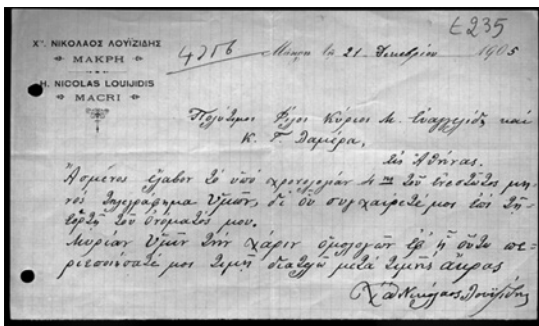 Ε235
Χ" ΝΙΚΟΛΑΟΣ ΛΟΥΪΖΙΔΗΣ
ΜΑΚΡΗ
H. NICOLAS LOUIJIDIS
MACRI
Μάκρη τῇ 21 Δεκεμβρίου 1905
Πολύτιμοι Φίλοι Κύριοι Μ. Εὐαγγελίδη καὶ
Κ. Γ. Λαμέρα,
εἰς Ἀθήνας.
Ἀσμένως ἔλαβον τὸ ὑπὸ χρονολογίαν τοῦ ἐνεστῶτος μη-
νὸς τηλεγράφημα Ὑμῶν, δι' οὗ συγχαίρετέ μοι ἐπὶ τῇ
ἑορτῇ τοῦ ὀνόματός μου.
Μυρίαν Ὑμῖν τὴν χάριν ὁμολογῶν ἐφ' ᾗ οὕτω πε-
ριεποιήσατέ μοι τιμῇ διατελῶ μετὰ τιμῆς ἄκρας
Χ" Νικόλαος Λουϊζίδης